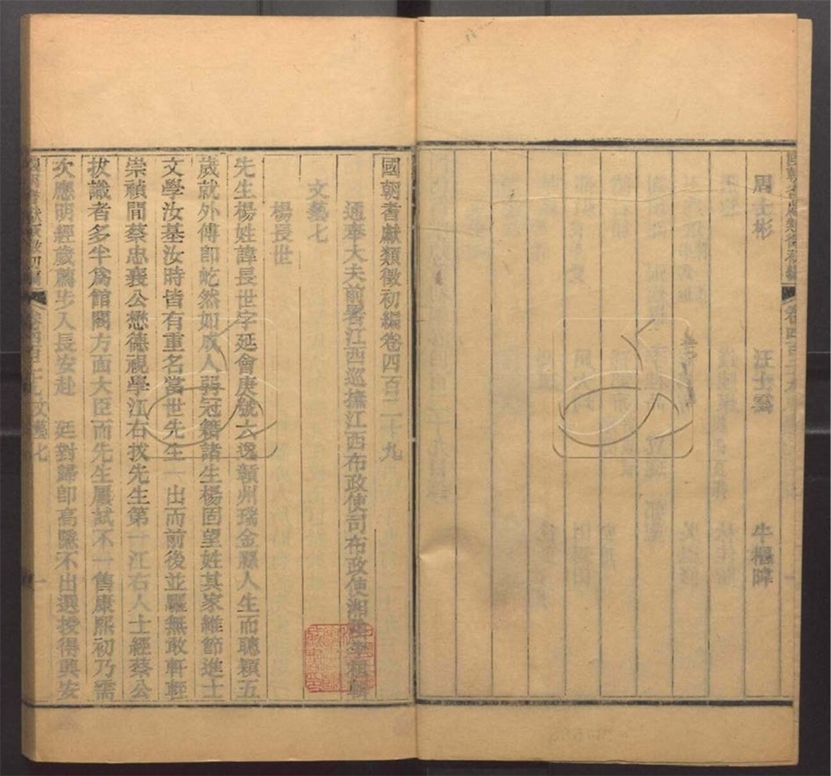 周士彬　汪士雲　牛樞暐
國朝耆獻類徵初編卷四百二十九
通奉大夫前署江西巡撫江西布政使司布政使湘陰李桓輯
文藝七
楊長世
先生楊姓諱長世字延會庚號六逸贛州瑞金縣人生而聰穎五
歲就外傅卽屹然如成人弱冠籍諸生楊固望姓其家維節進士
文學汝基汝時皆有重名當世先生一出而前後並驅無敢軒輊
崇禎間蔡忠襄公懋德視學江右拔先生第一江右人士經蔡公
拔識者多半爲館閣方面大臣而先生屢試不一售康熙初乃需
次應明經歲薦步入長安赴　廷對歸卽高臥不出選授得興安